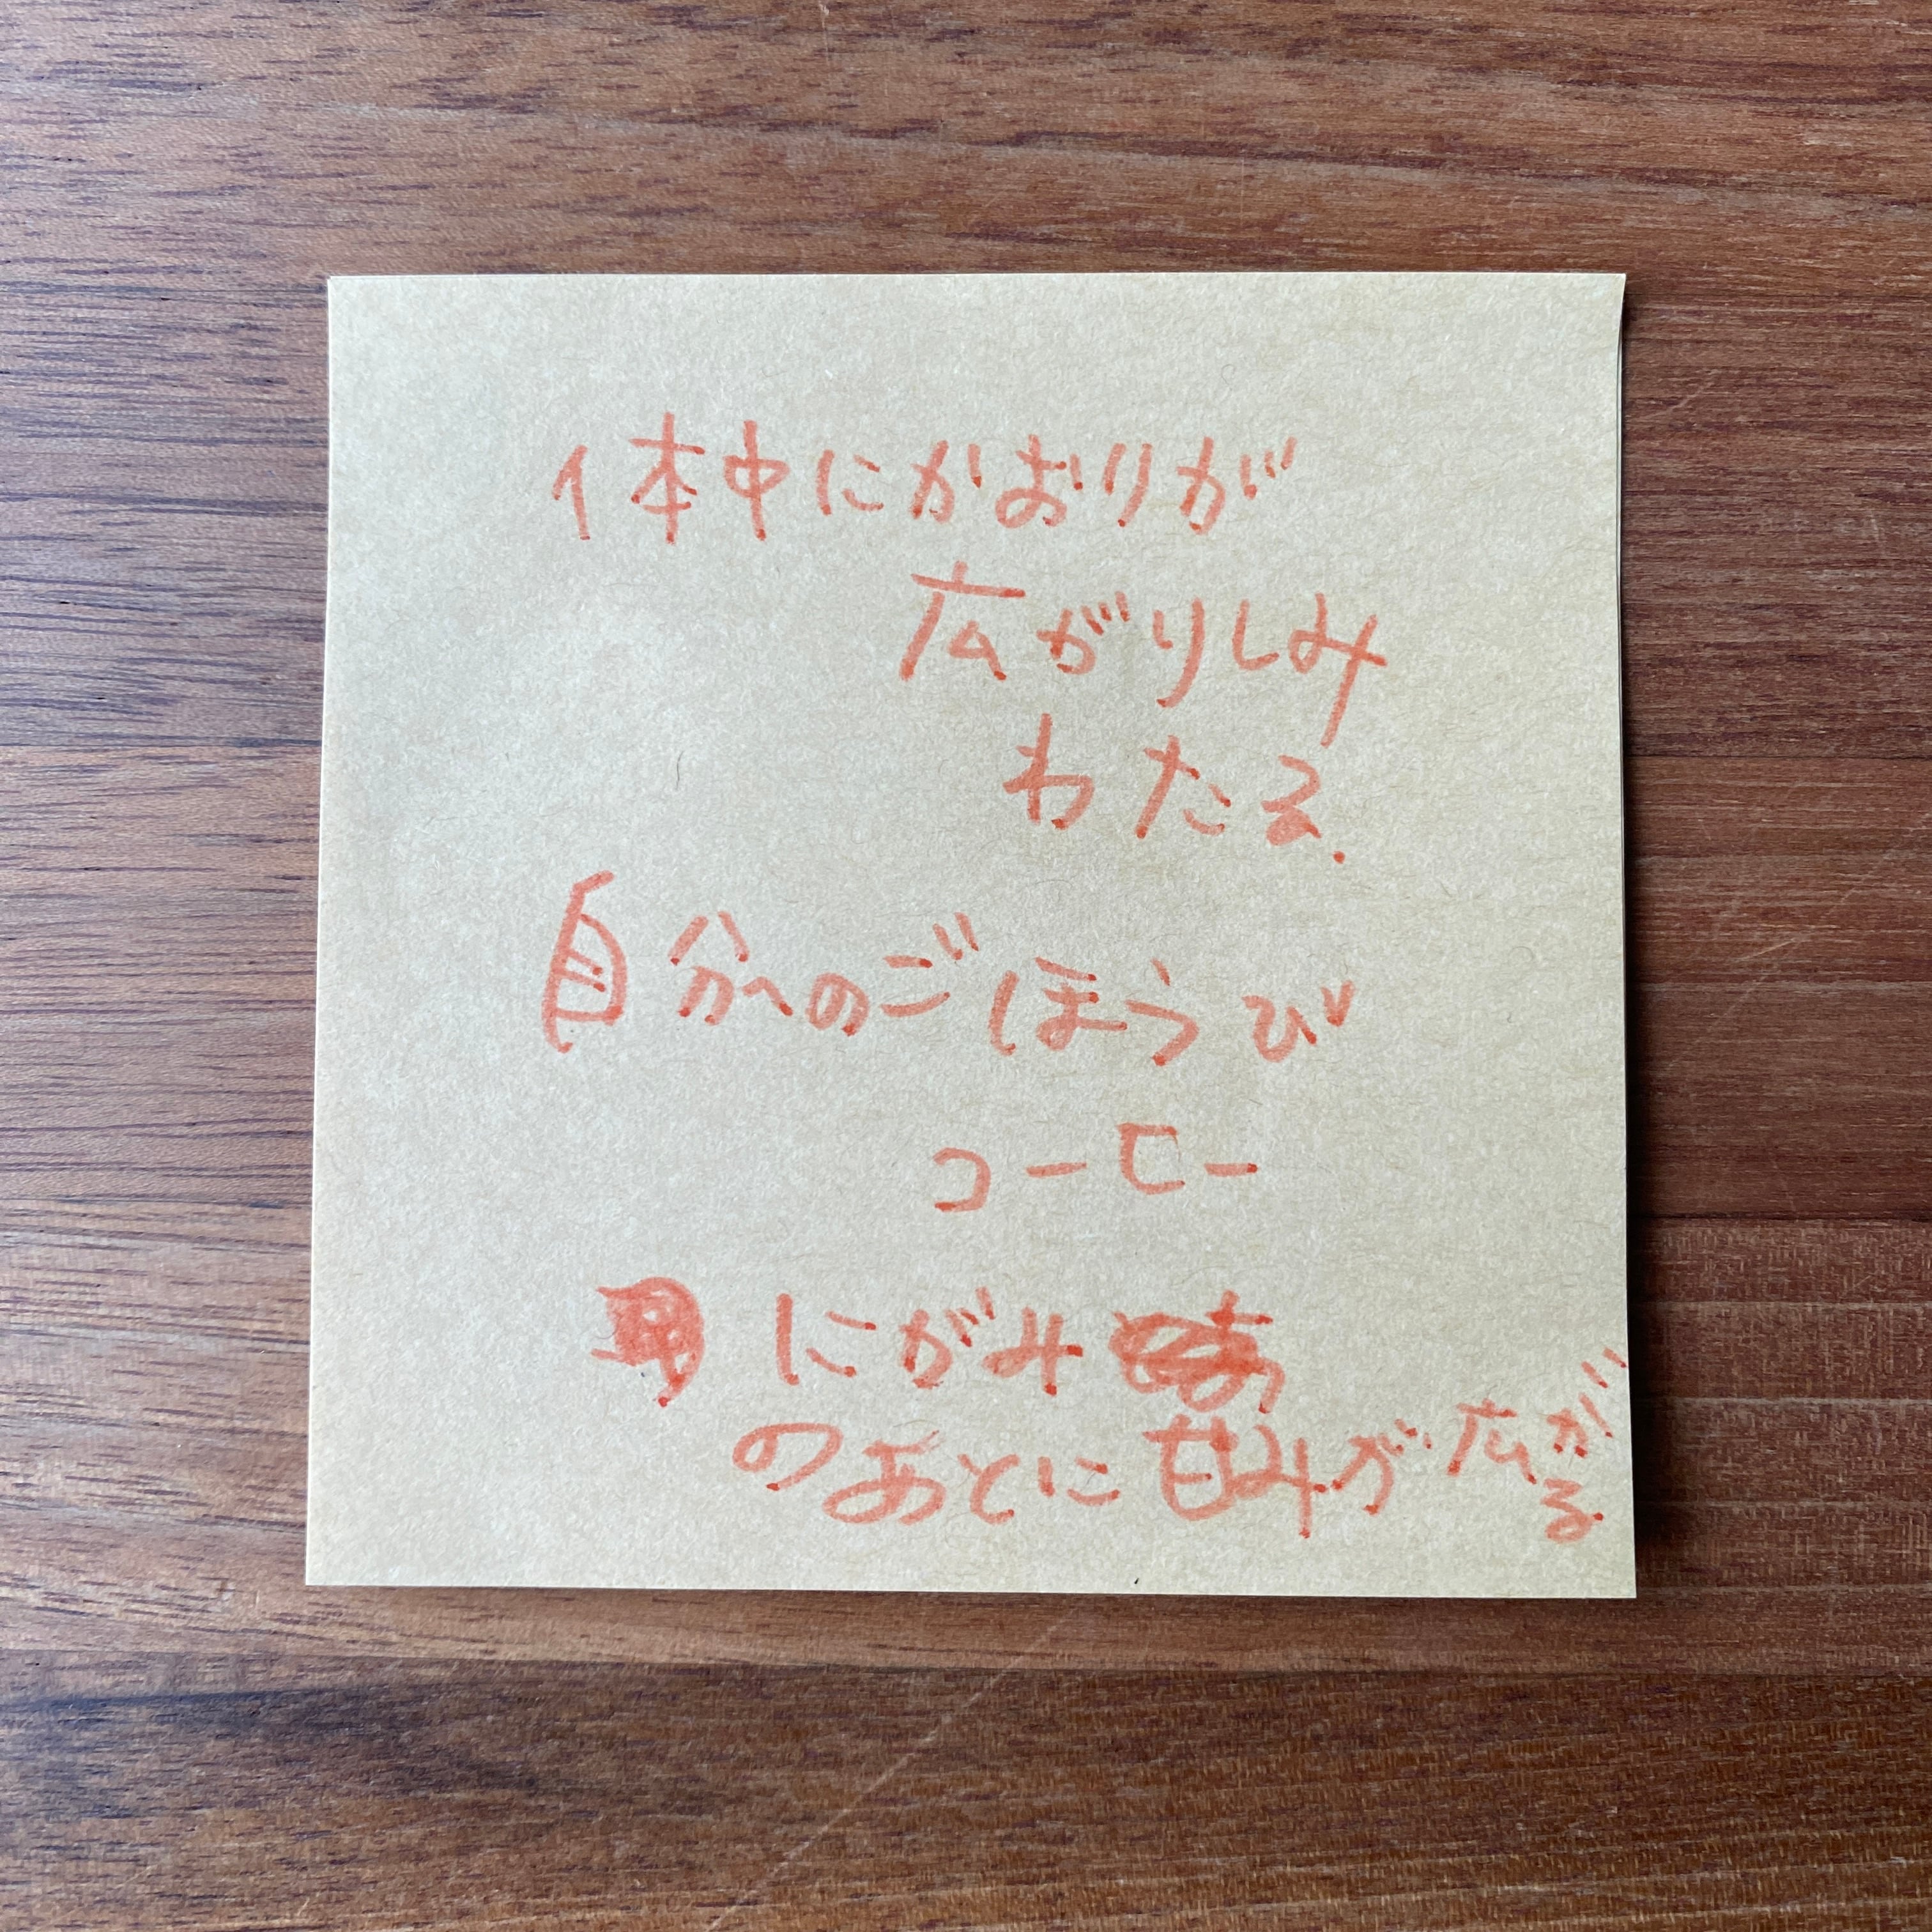 体中にかおりが
広がりしみ
わたる.
自分へのごほうび
コーヒー
にがみ
のあとに甘みが広が
る